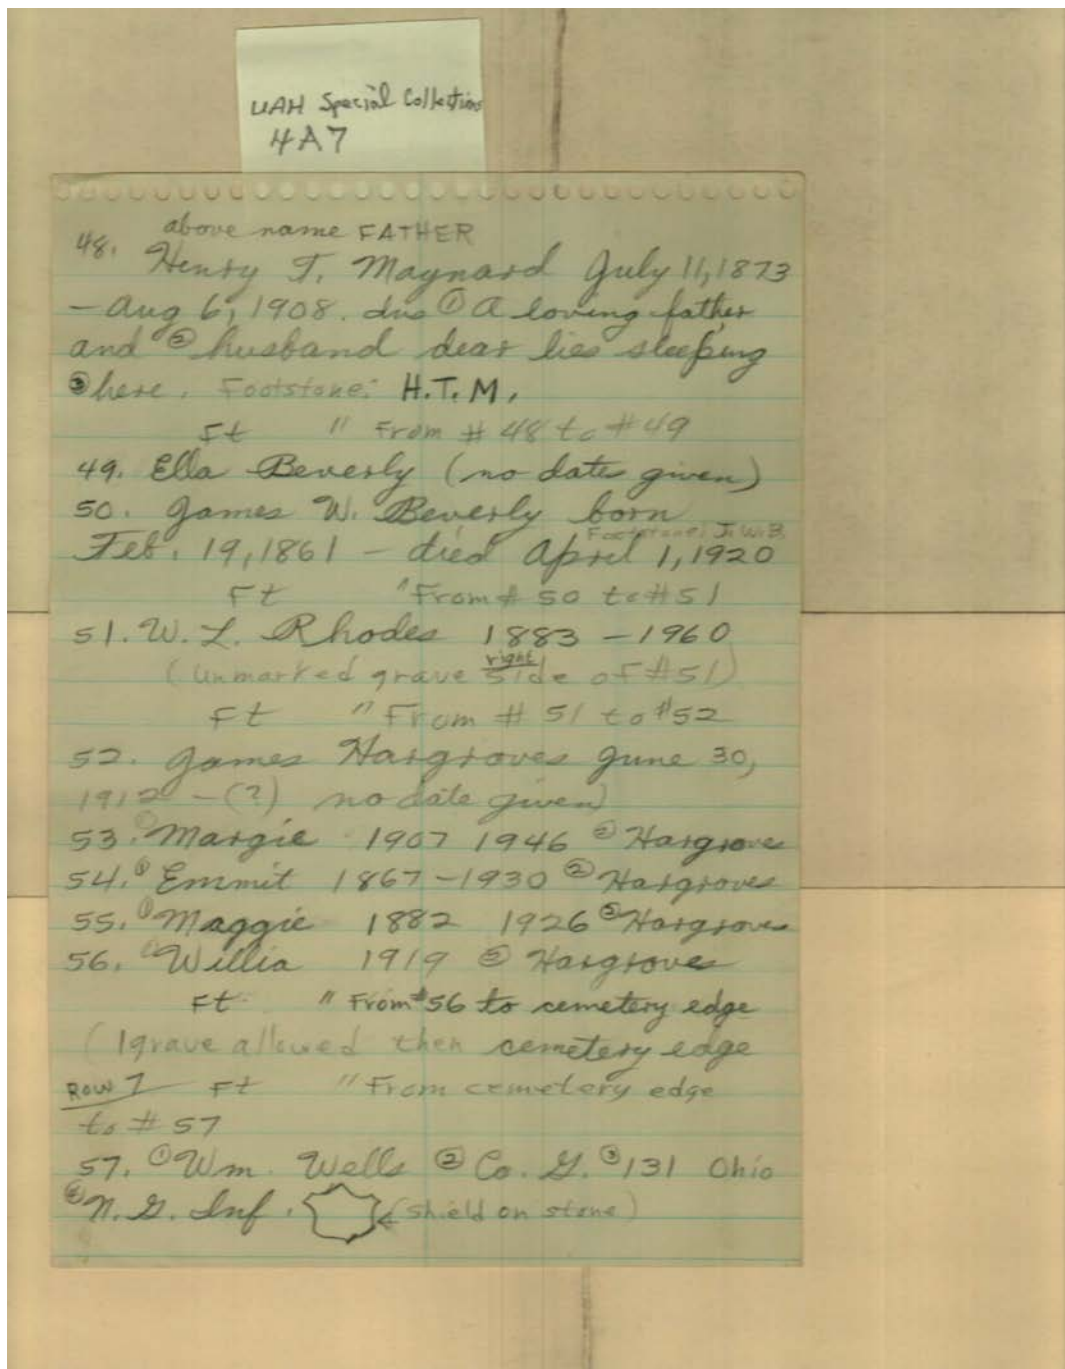 UAH Special Collections
4A7
above name FATHER
48. Henry T. Maynard July 11, 1873
- Aug 6, 1908. ins ① A loving father
and ② husband dear lies sleeping
③ here. Footstone: H.T.M.
Ft " From # 48 to #49
49. Ella Beverly (no dates given)
50. James W. Beverly born
Footstone: J.W.B.
Feb. 19, 1861 - died April 1, 1920
Ft " From # 50 to #51
51. W. L. Rhodes 1883 - 1960
right
(Unmarked grave side of #51)
Ft " From # 51 to #52
52. James Hargroves June 30,
1912 - (?) no date given)
53. ① Margie 1907 1946 ② Hargroves
54. ① Emmit 1867 - 1930 ② Hargroves
55. ① Maggie 1882 1926 ② Hargroves
56. ① Willia 1919 ② Hargroves
Ft. " From #56 to cemetery edge
(1 grave allowed then cemetery edge
Row 7 Ft " From cemetery edge
to # 57
57. ① Wm. Wells ② Co. G. ③ 131 Ohio
④ N. G. Inf. (shield on stone)